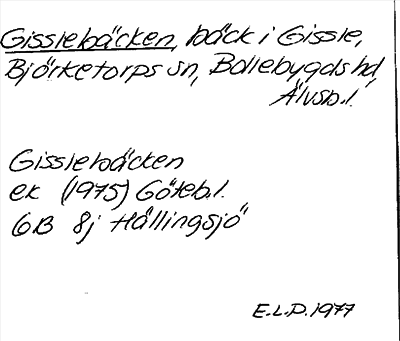 Gisslebäcken, bäck i Gissle,
Björketorps sn, Bollebygds hd,
Älvsb.l.
Gisslebäcken
ek (1975) Göteb.l.
6B 8j Hällingsjö
E.L.D. 1977